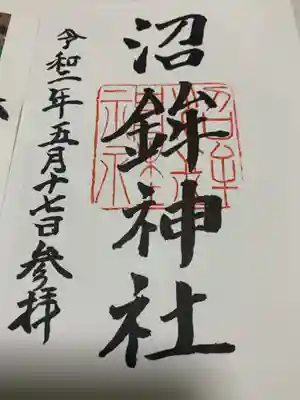 沼鉾神社
令和二年五月十七日参拝